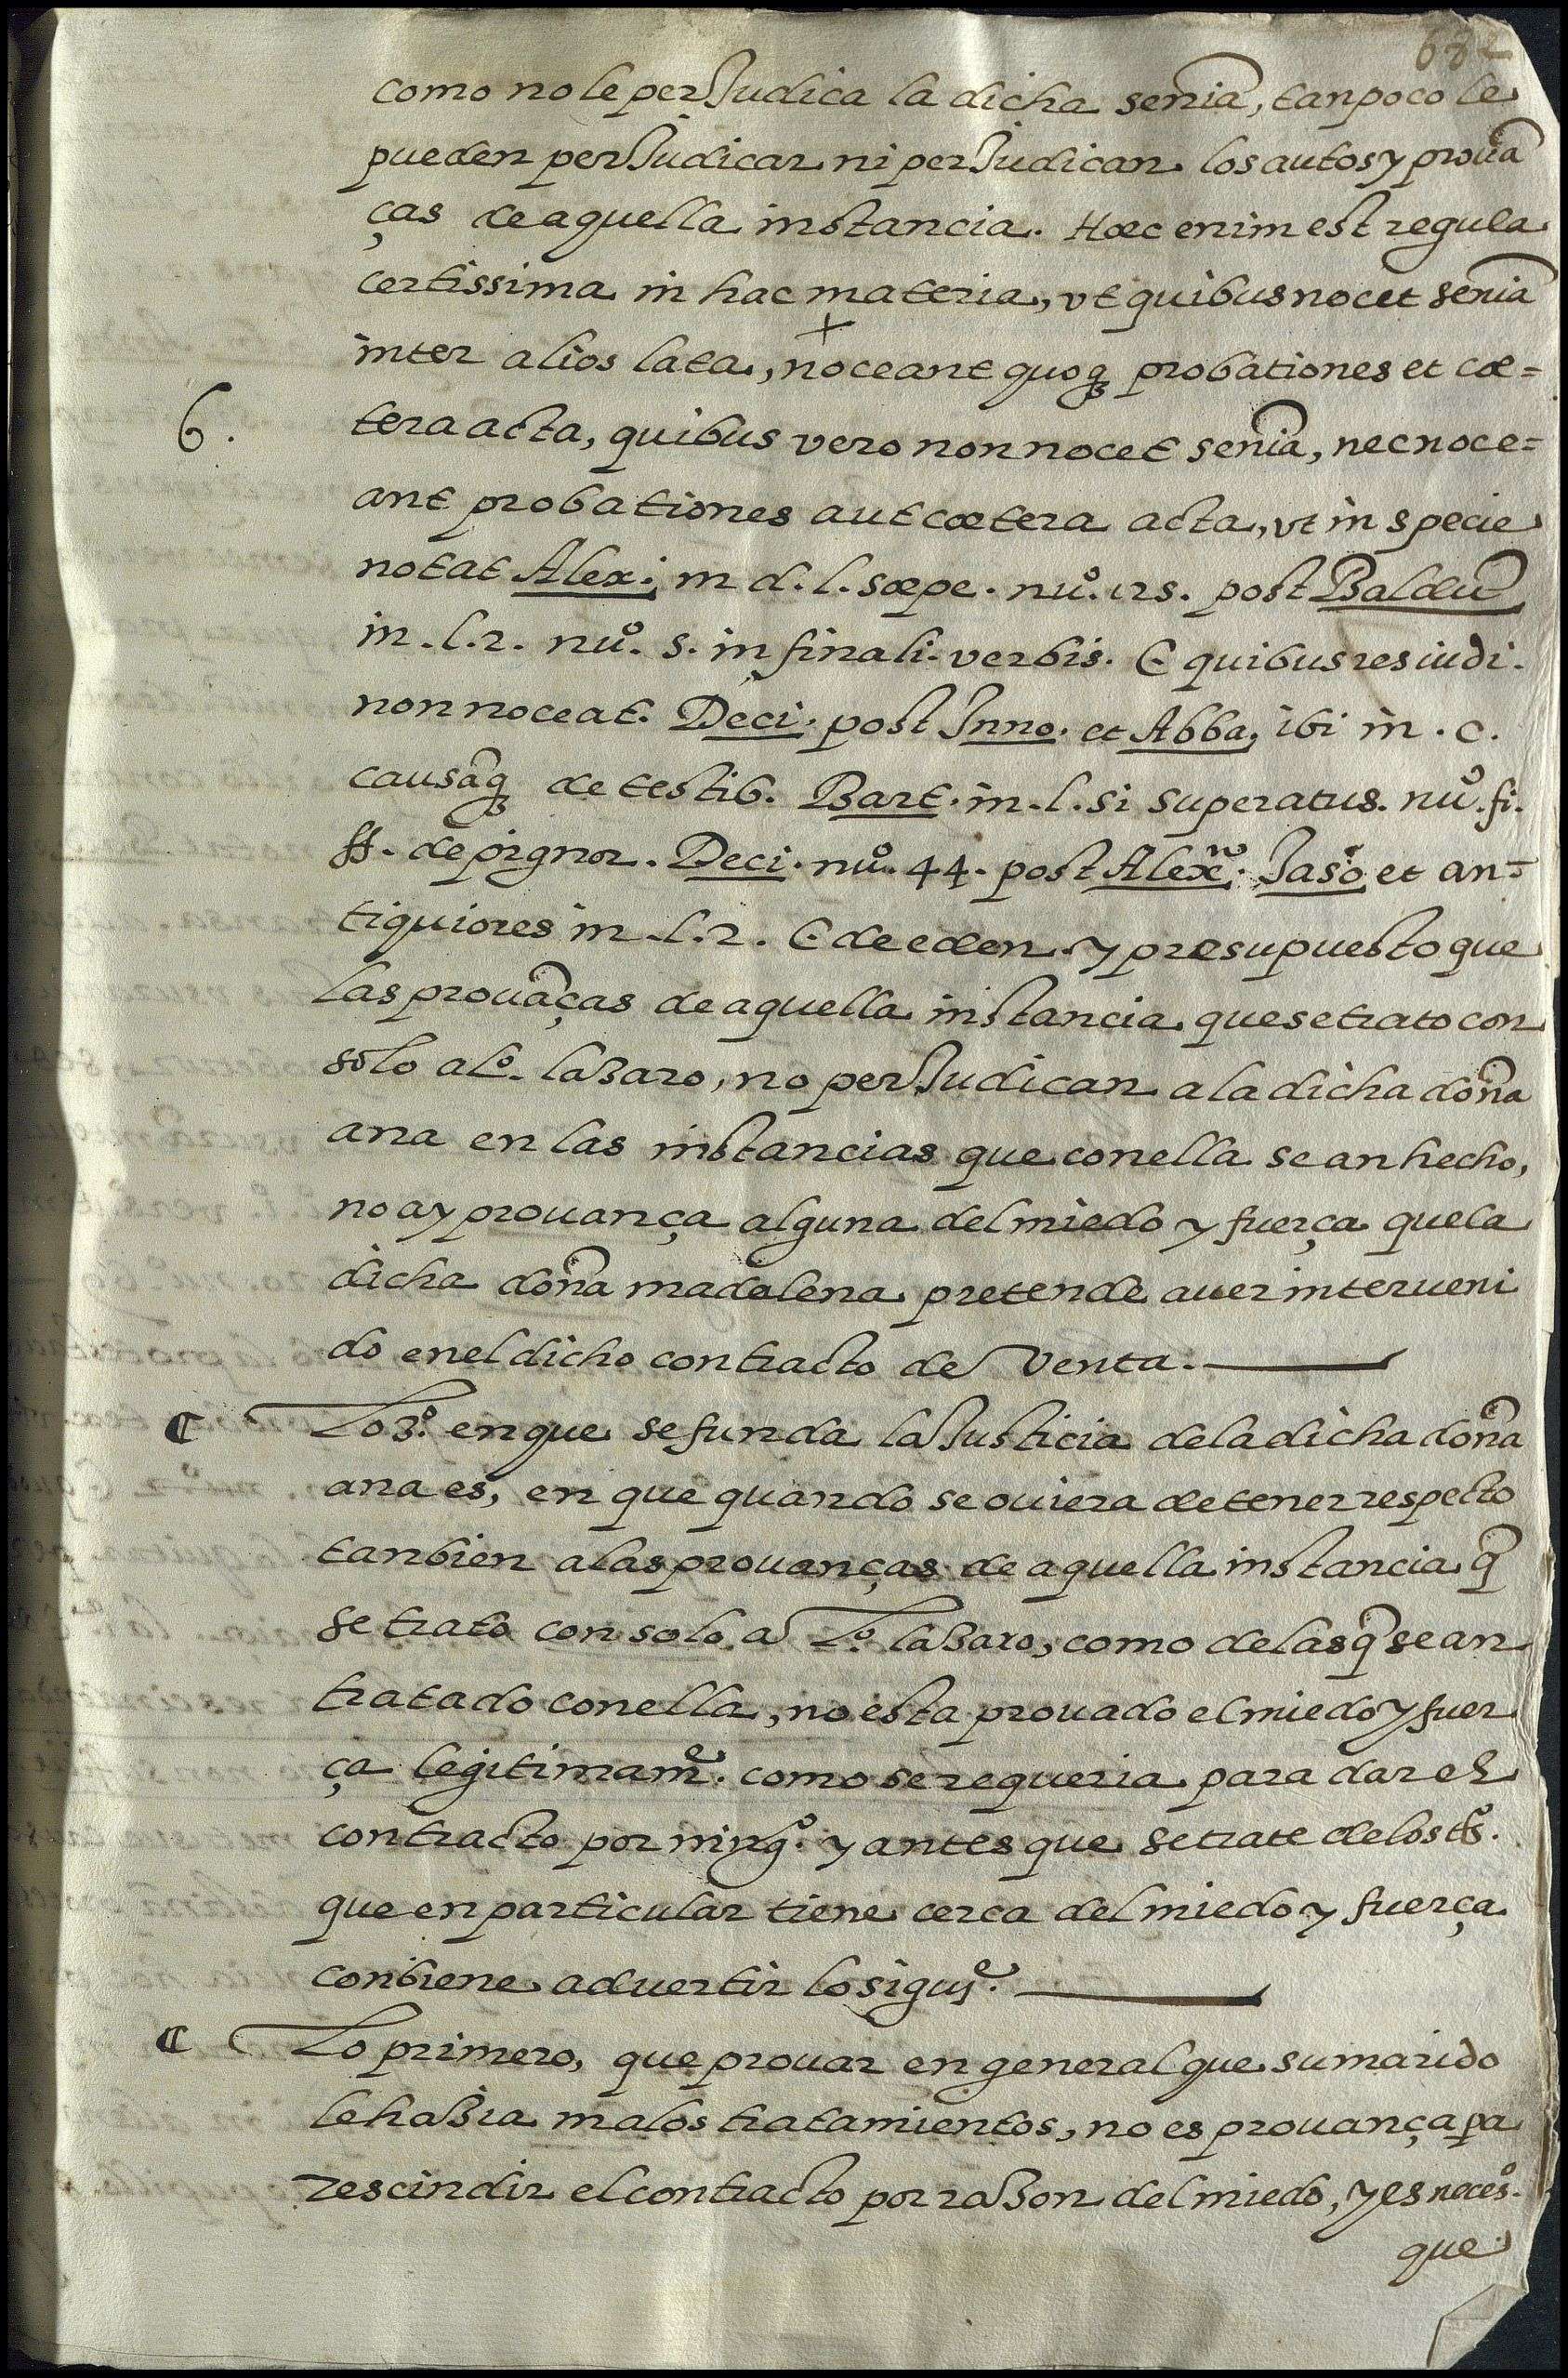 682
como no le perJudica la dicha senia, tanpoco le
pueden perJudicar ni perJudican los autos y prouã
ças de aquella instancia. Hæc enim est regula
certissima in hac materia, vt quibus nocet senia
inter alios lata, noceant quoq3 probationes et cæ=
6. tera acta, quibus vero non nocet senia, nec noce=
ant probationes aut cætera acta, vt in specie
notat Alex. in d. l. sæpe. nuº. 125. post Baldũ
in. l. 2. nuº. 5. in finali. verbis. C. quibus res iudi.
non noceat. Deci. post Inno. et Abba. ibi in. c.
causãq3 de testib. Bart. in. l. si superatus. nuº. fi.
ff. de pignor. Deci. nuº. 44. post Alexº. Jasõ et an=
tiquiores in. l. 2. C. de eden. y presupuesto que
las prouãças de aquella instancia que se trato con
solo a Lº. laZaro, no perJudican a la dicha doña
ana en las instancias que con ella se an hecho,
no ay prouança alguna del miedo y fuerça que la
dicha doña madalena pretende auer interueni
do en el dicho contracto de Venta.
C Lo 3º. en que se funda la Justicia de la dicha doña
ana es, en que quando se ouiera de tener respecto
tanbien a las prouanças de aquella instancia q̃
se trato con solo a Lº. laZaro, como de las q̃ se an
tratado con ella, no esta prouado el miedo y fuer
ça legitimamᵉ. como se requeria para dar el
contracto por ningº. y antes que se trate de los tºs.
que en particular tiene cerca del miedo y fuerça
conbiene aduertir lo siguᵉ.
C Lo primero, que prouar en general que su marido
le haZia malos tratamientos, no es prouança pa
rescindir el contracto por raZon del miedo, y es necesº.
que